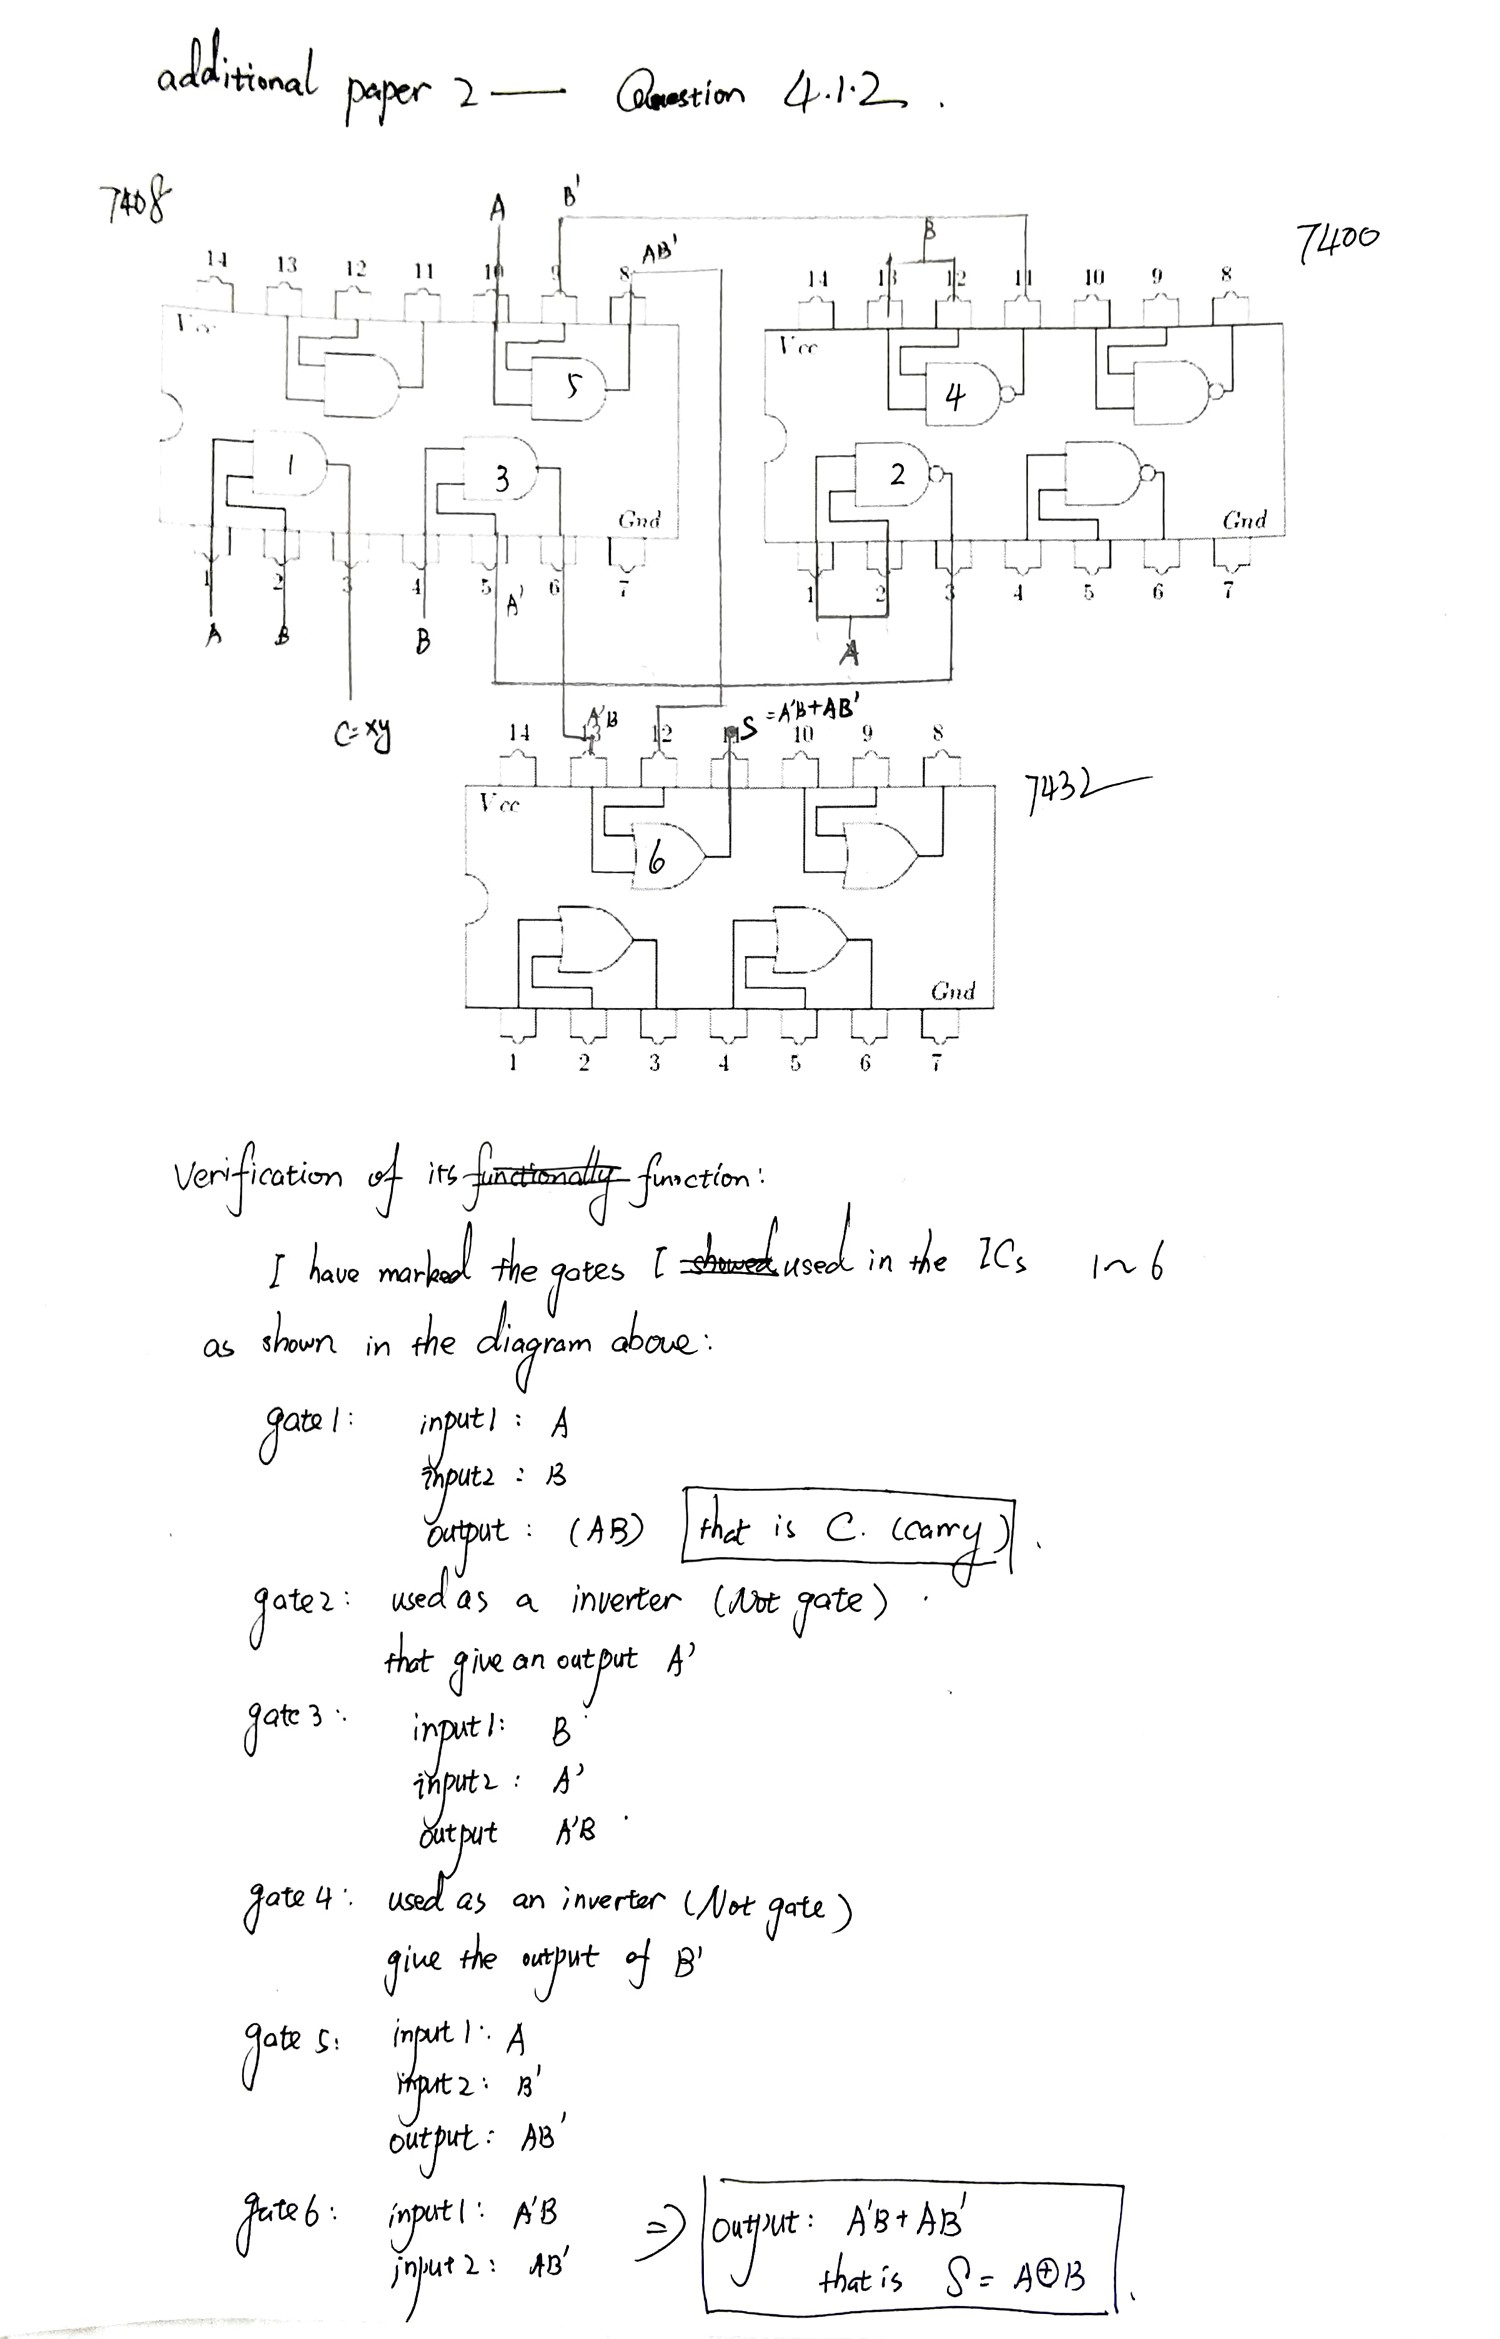 additional paper 2 — Question 4.1.2.
7408
A B'
AB'
B
7400
14 13 12 11 10 9 8
14 13 12 11 10 9 8
Vcc
Vcc
5
4
1
3
2
Gnd
Gnd
1 2 3 4 5 6 7
1 2 3 4 5 6 7
A'
A B B
A
C=xy
A'B
S =A'B+AB'
14 13 12 11 10 9 8
7432
Vcc
6
Gnd
1 2 3 4 5 6 7
Verification of its functionally function:
I have marked the gates I showed used in the ICs 1~6
as shown in the diagram above:
gate 1: input1 : A
input2 : B
output : (AB) that is C. (carry).
gate2: used as a inverter (Not gate).
that give an output A'
gate 3: input1: B
input2 : A'
output A'B
gate 4: used as an inverter (Not gate)
give the output of B'
gate 5: input 1: A
input 2: B'
output: AB'
gate 6: input1: A'B ⇒ output: A'B+AB'
input 2: AB' that is S = A⊕B.